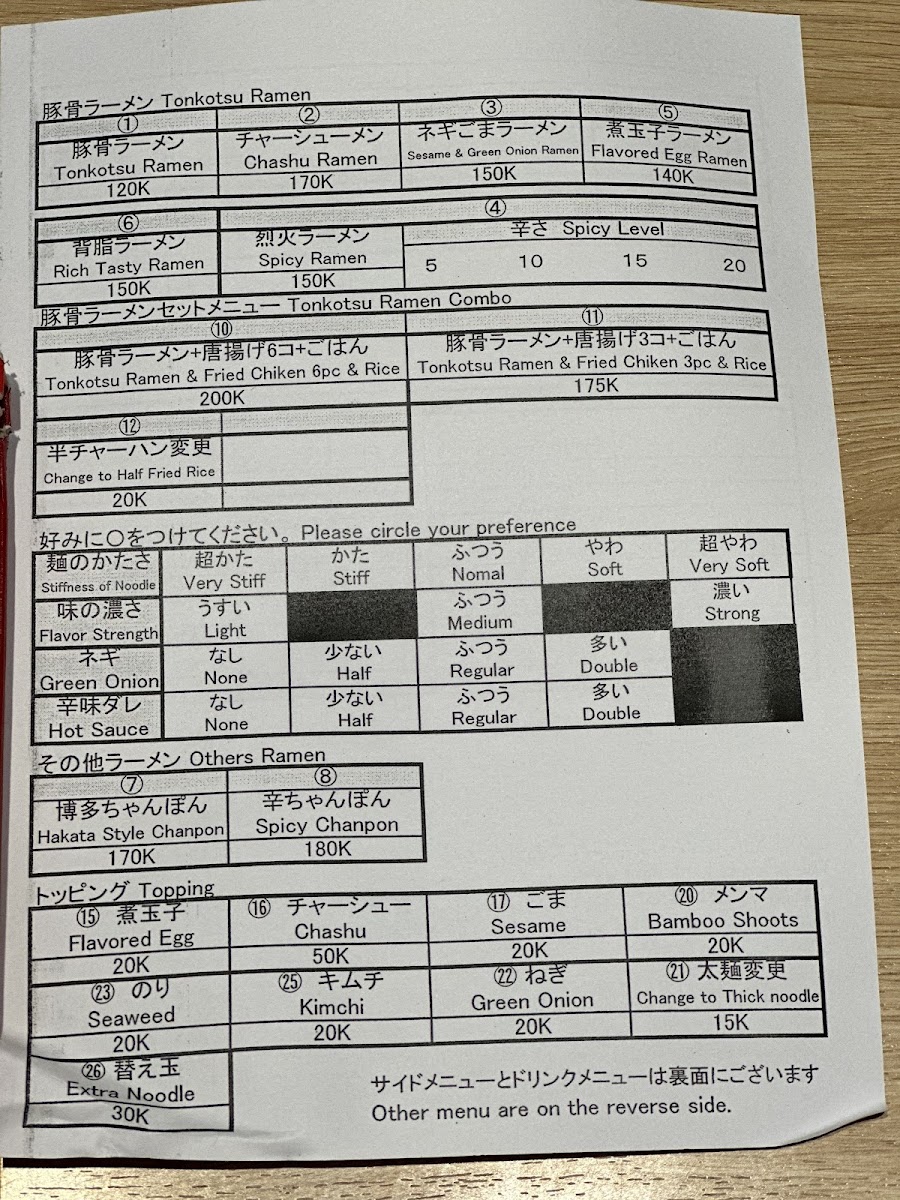 豚骨ラーメン Tonkotsu Ramen
① ② ③ ⑤
豚骨ラーメン チャーシューメン ネギごまラーメン 煮玉子ラーメン
Tonkotsu Ramen Chashu Ramen Sesame & Green Onion Ramen Flavored Egg Ramen
120K 170K 150K 140K
⑥ ④
背脂ラーメン 烈火ラーメン 辛さ Spicy Level
Rich Tasty Ramen Spicy Ramen 5 10 15 20
150K 150K
豚骨ラーメンセットメニュー Tonkotsu Ramen Combo
⑩ ⑪
豚骨ラーメン+唐揚げ6コ+ごはん 豚骨ラーメン+唐揚げ3コ+ごはん
Tonkotsu Ramen & Fried Chiken 6pc & Rice Tonkotsu Ramen & Fried Chiken 3pc & Rice
200K 175K
⑫
半チャーハン変更
Change to Half Fried Rice
20K
好みに〇をつけてください。 Please circle your preference
麺のかたさ 超かた かた ふつう やわ 超やわ
Stiffness of Noodle Very Stiff Stiff Nomal Soft Very Soft
味の濃さ うすい ふつう 濃い
Flavor Strength Light Medium Strong
ネギ なし 少ない ふつう 多い
Green Onion None Half Regular Double
辛味ダレ なし 少ない ふつう 多い
Hot Sauce None Half Regular Double
その他ラーメン Others Ramen
⑦ ⑧
博多ちゃんぽん 辛ちゃんぽん
Hakata Style Chanpon Spicy Chanpon
170K 180K
トッピング Topping
⑮ 煮玉子 ⑯ チャーシュー ⑰ ごま ⑳ メンマ
Flavored Egg Chashu Sesame Bamboo Shoots
20K 50K 20K 20K
㉓ のり ㉕ キムチ ㉒ ねぎ ㉑ 太麺変更
Seaweed Kimchi Green Onion Change to Thick noodle
20K 20K 20K 15K
㉖ 替え玉
Extra Noodle
30K
サイドメニューとドリンクメニューは裏面にございます
Other menu are on the reverse side.